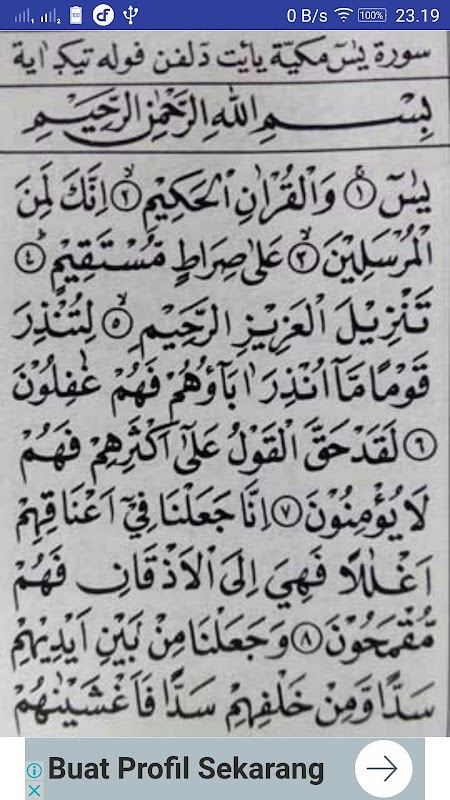 0 B/s 100% 23.19
سورة يٰسٓ مكيّة يايت دلفن فوله تيݢ اية
بِسْمِ اللّٰهِ الرَّحْمٰنِ الرَّحِيْمِ
يٰسٓ ۝١ وَالْقُرْاٰنِ الْحَكِيْمِ ۝٢ اِنَّكَ لَمِنَ
الْمُرْسَلِيْنَ ۝٣ عَلٰى صِرَاطٍ مُّسْتَقِيْمٍ ۝٤
تَنْزِيْلَ الْعَزِيْزِ الرَّحِيْمِ ۝٥ لِتُنْذِرَ
قَوْمًا مَّآ اُنْذِرَ اٰبَآؤُهُمْ فَهُمْ غٰفِلُوْنَ
۝٦ لَقَدْ حَقَّ الْقَوْلُ عَلٰٓى اَكْثَرِهِمْ فَهُمْ
لَا يُؤْمِنُوْنَ ۝٧ اِنَّا جَعَلْنَا فِيْٓ اَعْنَاقِهِمْ
اَغْلٰلًا فَهِيَ اِلَى الْاَذْقَانِ فَهُمْ
مُّقْمَحُوْنَ ۝٨ وَجَعَلْنَا مِنْۢ بَيْنِ اَيْدِيْهِمْ
سَدًّا وَّمِنْ خَلْفِهِمْ سَدًّا فَاَغْشَيْنٰهُمْ
Buat Profil Sekarang